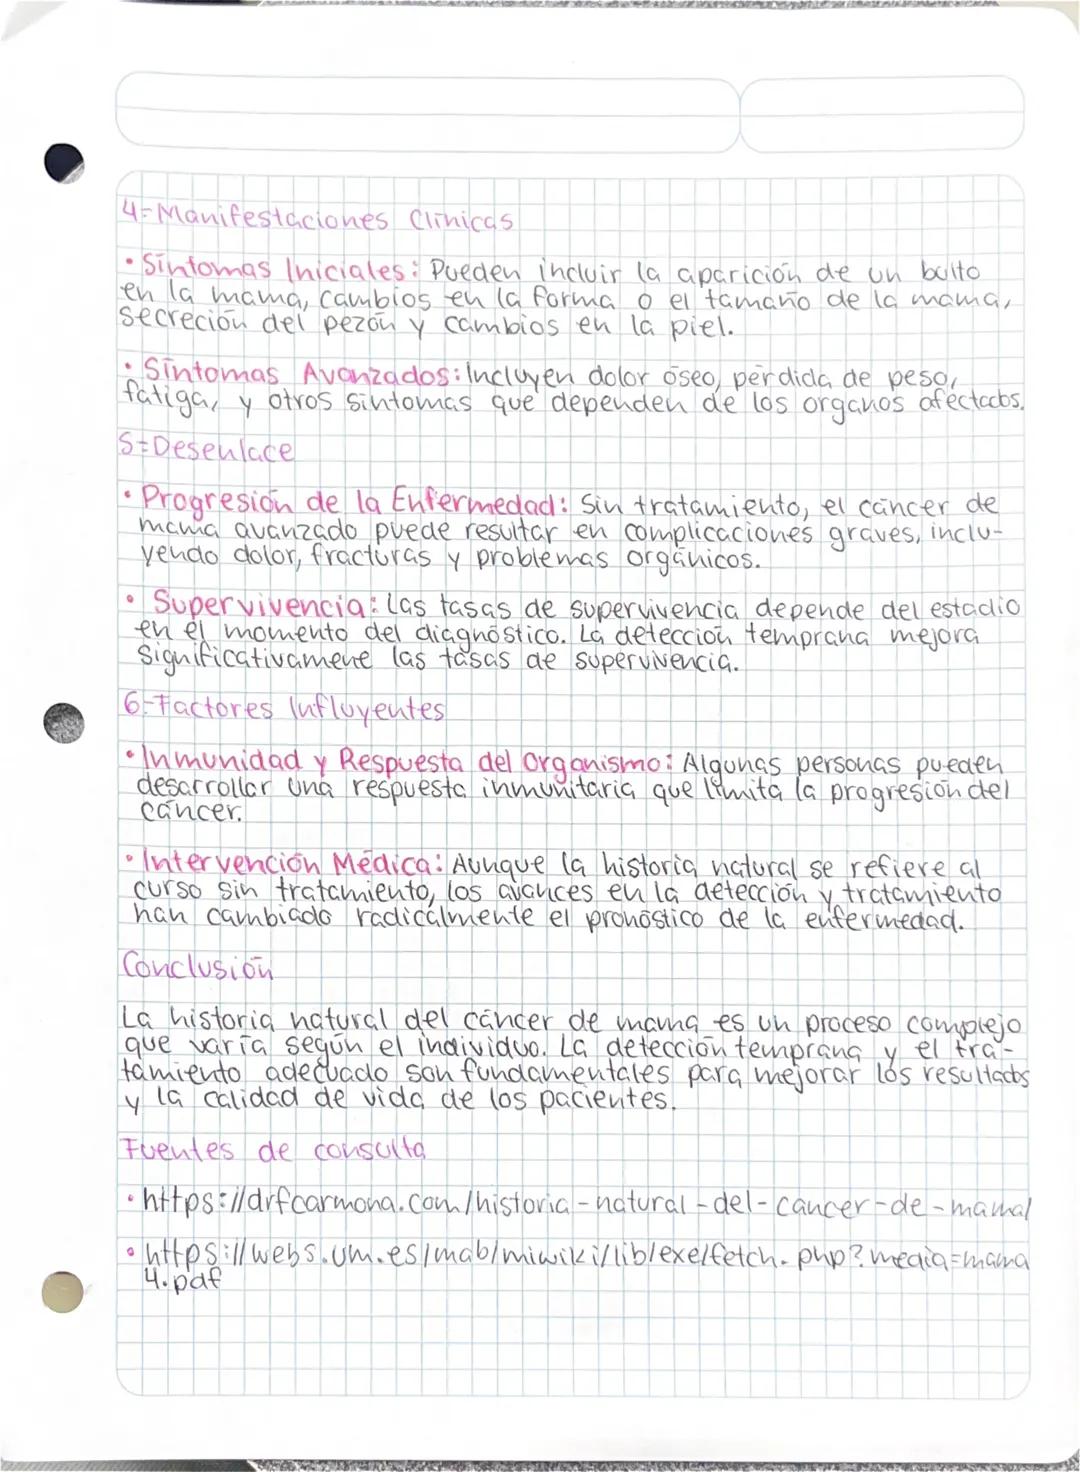 4-Manifestaciones Clínicas
• Síntomas Iniciales: Pueden incluir la aparición de un bulto
en la mama, cambios en la forma o el tamaño de la mama,
secreción del pezón y cambios en la piel.
• Síntomas Avanzados: Incluyen dolor óseo, pérdida de peso,
fatiga, y otros síntomas que dependen de los organos afectados.
5-Desenlace
• Progresión de la Enfermedad: Sin tratamiento, el cáncer de
mama avanzado puede resultar en complicaciones graves, inclu-
yendo dolor, fracturas y problemas orgánicos.
• Supervivencia: Las tasas de supervivencia depende del estadio
en el momento del diagnóstico. La detección temprana mejora
significativamene las tasas de supervivencia.
6-Factores Influyentes
• Inmunidad y Respuesta del Organismo: Algunas personas pueden
desarrollar una respuesta inmunitaria que limita la progresión del
cáncer.
• Intervención Médica: Aunque la historia natural se refiere al
curso sin tratamiento, los avances en la detección y tratamiento
han cambiado radicalmente el pronóstico de la enfermedad.
Conclusión
La historia natural del cáncer de mama es un proceso complejo
que varía según el individuo. La detección temprana y el tra-
tamiento adecuado son fundamentales para mejorar los resultados
y la calidad de vida de los pacientes.
Fuentes de consulta
• https://drfcarmona.com/historia-natural-del-cancer-de-mama/
• https://webs.um.es/mab/miwiki/lib/exe/fetch.php?media=mama
4.pdf